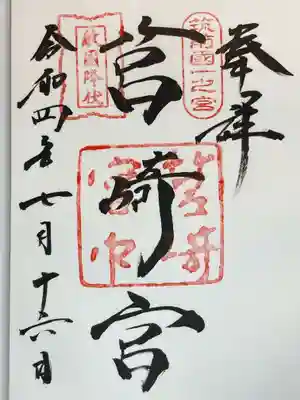 奉拝
筑前國一之宮
敵國降伏
筥崎宮
令和四年七月十六日